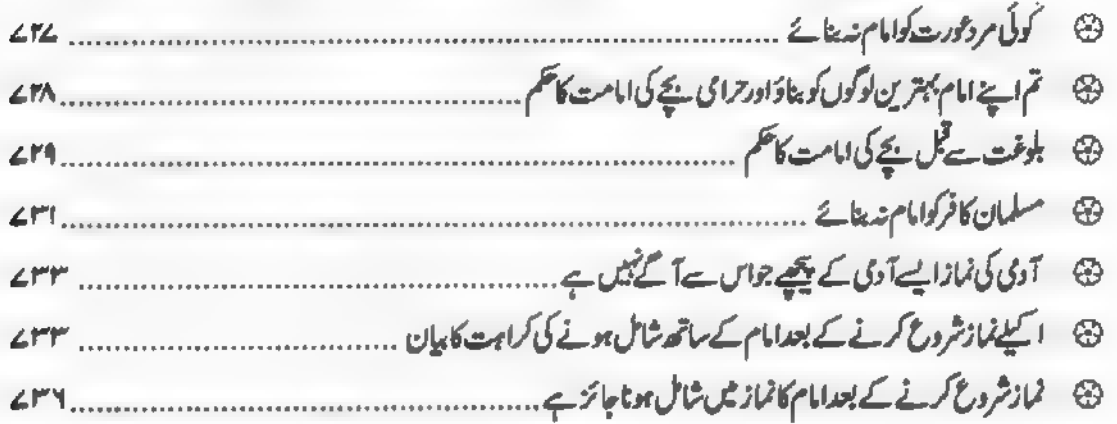 کوئی مرد عورت کو امام نہ بنائے ........ ۷۲۷
تم اپنے امام بہترین لوگوں کو بناؤ اور حرامی بچے کی امامت کا حکم ........ ۷۲۸
بلوغت سے قبل بچے کی امامت کا حکم ........ ۷۲۹
مسلمان کافر کو امام نہ بنائے ........ ۷۳۱
آدمی کی نماز ایسے آدمی کے پیچھے جو اس سے آگے نہیں ہے ........ ۷۳۳
اکیلے نماز شروع کرنے کے بعد امام کے ساتھ شامل ہونے کی کراہت کا بیان ........ ۷۳۳
نماز شروع کرنے کے بعد امام کا نماز میں شامل ہونا جائز ہے ........ ۷۳۶